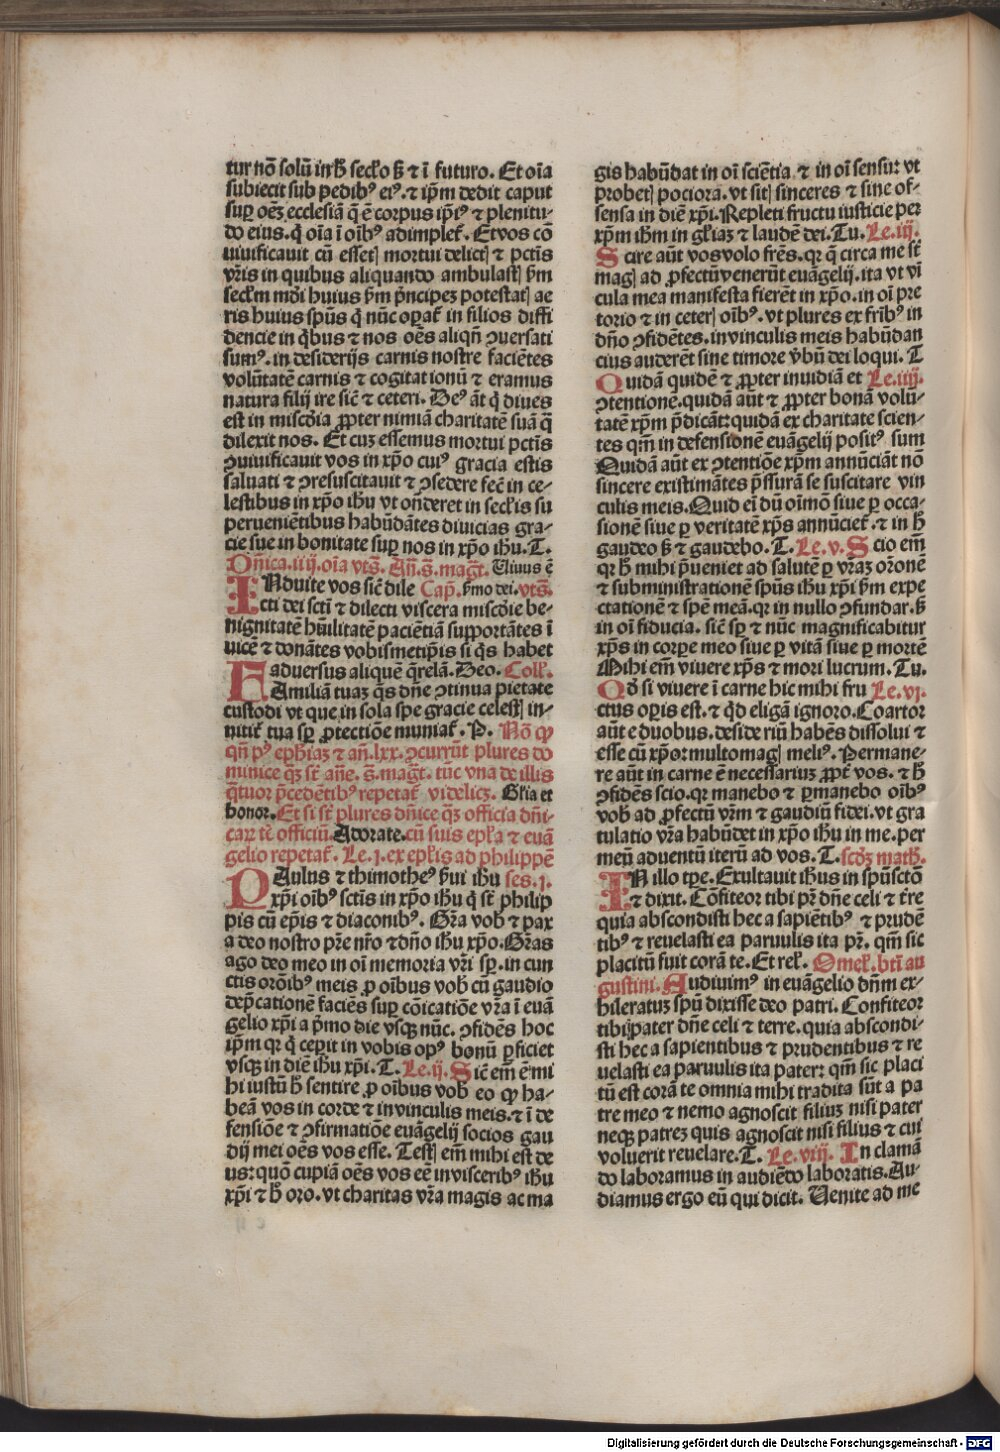 tur nō solū in h̄ sec̄lo sꝫ ⁊ ī futuro. Et oīa
subiecit sub pedibꝰ eiꝰ. ⁊ ip̄m dedit caput
suꝑ oēꝫ ecclesiā q̄ ē corpus ip̄iꝰ ⁊ plenitu-
do eius. q̇ oīa ī oībꝰ adimplet̄. Et vos cō
uiuificauit cū essetꝭ mortui delictꝭ ⁊ pctīs
vr̄is in quibus aliquando ambulastꝭ ẜm
sec̄lm mōi huius ẜm p̄ncipeꝫ potestatꝭ ae
ris huius spūs q̇ nūc oꝑat̄ in filios diffi
dencie in q̇bus ⁊ nos oēs aliqn̄ ꝯuersati
sumꝰ. in desiderijs carnis nostre faciētes
volūtatē carnis ⁊ cogitationū ⁊ eramus
natura filij ire sic̄ ⁊ ceteri. Deꝰ āt q̇ diues
est in misc̄dia ꝓpter nimiā charitatē suā q̄
dilexit nos. Et cuꝫ essemus mortui pctīs
ꝯuiuificauit vos in xp̄o cuiꝰ gracia estis
saluati ⁊ ꝯresuscitauit ⁊ ꝯsedere fec̄ in ce-
lestibus in xp̄o ih̄u vt on̄deret in sec̄lis su
perueniētibus habūdātes diuicias gra-
cie sue in bonitate suꝑ nos in xp̄o ih̄u. T.
Dn̄ica. iiij. oīa vts̄. An̄. s̄. maḡt. Uiuus ē
INduite vos sic̄ dile Cap̄. ẜmo dei. vts̄.
cti dei sctī ⁊ dilecti viscera misc̄die be-
nignitatē hūilitatē paciētiā supportātes ī
uicē ⁊ donātes vobismetip̄is si q̇s habet
aduersus aliquē q̄relā. Deo. Coll̄.
FAmiliā tuaꝫ q̄s dn̄e ꝯtinua pietate
custodi vt que in sola spe gracie celestꝭ in-
nitit̄ tua sꝑ ꝓtectiōe muniat̄. P. Nō ꝙ
qn̄ pꝰ ep̄hiaꝫ ⁊ an̄. lxx. ꝯcurrūt plures do
minice qꝫ st̄ an̄e. s̄. maḡt. tūc vna de illis
q̄tuor p̄cedētibꝰ repetat̄ videlicꝫ. Gl̄ia et
honor. Et si st̄ plures dn̄ice qꝫ officia dn̄i-
caꝝ tē officiū. Adorate. cū suis ep̄la ⁊ euā
gelio repetat̄. Le. j. ex ep̄lis ad philippē
PAulus ⁊ thimotheꝰ ẜui ih̄u ses. j.
xp̄i oībꝰ sctīs in xp̄o ih̄u q̇ st̄ philip
pis cū ep̄is ⁊ diaconibꝰ. Gr̄a vob̄ ⁊ pax
a deo nostro pr̄e nr̄o ⁊ dn̄o ih̄u xp̄o. Gr̄as
ago deo meo in oī memoria vr̄i sꝑ. in cun
ctis orōībꝰ meis ꝓ oībus vob̄ cū gaudio
dep̄cationē faciēs suꝑ cōicatiōe vr̄a ī euā
gelio xp̄i a p̄mo die vsqꝫ nūc. ꝯfidēs hoc
ip̄m qꝛ q̇ cepit in vobis opꝰ bonū ꝑficiet
vsqꝫ in diē ih̄u xp̄i. T. Le. ij. Sic̄ em̄ ē mi
hi iustū h̄ sentire ꝓ oībus vob̄ eo ꝙ ha-
beā vos in corde ⁊ in vinculis meis. ⁊ ī de
fensiōe ⁊ ꝯfirmatiōe euāgelij socios gau
dij mei oēs vos esse. Testꝭ em̄ mihi est de
us: quō cupiā oēs vos eē in visceribꝰ ih̄u
xp̄i ⁊ h̄ oro. vt charitas vr̄a magis ac ma
gis habūdat in oī sciētia ⁊ in oī sensu: vt
probetꝭ pociora. vt sitꝭ sinceres ⁊ sine of-
fensa in diē xp̄i. Repleti fructu iusticie per
xp̄m ih̄m in gl̄iaꝫ ⁊ laudē dei. Tu. Le. iij.
Scire aūt vos volo fr̄es. qꝛ q̄ circa me st̄
magꝭ ad ꝓfectū venerūt euāgelij. ita vt vī
cula mea manifesta fierēt in xp̄o. in oī pre
torio ⁊ in ceterꝭ oībꝰ. vt plures ex fr̄ibꝰ in
dn̄o ꝯfidētes. in vinculis meis habūdan
cius auderēt sine timore v̄bū dei loqui. T
Quidā quidē ⁊ ꝓpter inuidiā et Le. iiij.
ꝯtentionē. quidā aūt ⁊ ꝓpter bonā volū-
tatē xp̄m p̄dicāt: quidā ex charitate scien-
tes qm̄ in defensionē euāgelij positꝰ sum
Quidā aūt ex ꝯtentiōe xp̄m annūciāt nō
sincere existimātes p̄ssurā se suscitare vin
culis meis. Quid eī dū oīmō siue ꝑ occa-
sionē siue ꝑ veritatē xp̄s annūciet̄. ⁊ in h̄
gaudeo sꝫ ⁊ gaudebo. T. Le. v. Scio em̄
qꝛ h̄ mihi ꝓueniet ad salutē ꝑ vr̄aꝫ orōnē
⁊ subministrationē spūs ih̄u xp̄i ẜm expe
ctationē ⁊ spē meā. qꝛ in nullo ꝯfundar. sꝫ
in oī fiducia. sic̄ sꝑ ⁊ nūc magnificabitur
xp̄s in corpe meo siue ꝑ vitā siue ꝑ mortē
Mihi em̄ viuere xp̄s ⁊ mori lucrum. Tu.
Qd̄ si viuere ī carne hic mihi fru Le. vj.
ctus oꝑis est. ⁊ qd̄ eligā ignoro. Coartor
aūt e duobus. desideriū habēs dissolui ⁊
esse cū xp̄o: multomagꝭ meliꝰ. Permane-
re aūt in carne ē necessariuꝫ ꝓpt̄ vos. ⁊ h̄
ꝯfidēs scio. qꝛ manebo ⁊ ꝑmanebo oībꝰ
vob̄ ad ꝓfectū vr̄m ⁊ gaudiū fidei. vt gra
tulatio vr̄a habūdet in xp̄o ih̄u in me. per
meū aduentū iterū ad vos. T. scd̄ꝫ math̄.
IN illo tp̄e. Exultauit ih̄us in spūsctō
⁊ dixit. Cōfiteor tibi pr̄ dn̄e celi ⁊ tr̄e
quia abscondisti hec a sapiētibꝰ ⁊ prudē
tibꝰ ⁊ reuelasti ea paruulis ita pr̄. qm̄ sic
placitū fuit corā te. Et rel̄. Omel̄. btī au
gustini. Audiuimꝰ in euāgelio dn̄m ex-
hileratuꝫ spū dixisse deo patri. Confiteor
tibi pater dn̄e celi ⁊ terre. quia abscondi-
sti hec a sapientibus ⁊ prudentibus ⁊ re
uelasti ea paruulis ita pater: qm̄ sic placi
tū est corā te omnia mihi tradita sūt a pa
tre meo ⁊ nemo agnoscit filiuꝫ nisi pater
necꝫ patreꝫ quis agnoscit nisi filius ⁊ cui
voluerit reuelare. T. Le. viij. In clamā
do laboramus in audiēdo laboratis. Au-
diamus ergo eū qui dicit. Uenite ad me
Digitalisierung gefördert durch die Deutsche Forschungsgemeinschaft - DFG